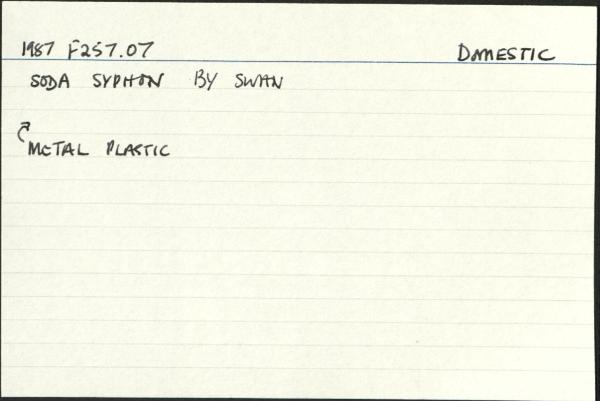 1987 F257.07 DOMESTIC
SODA SYPHON BY SWAN
METAL PLASTIC